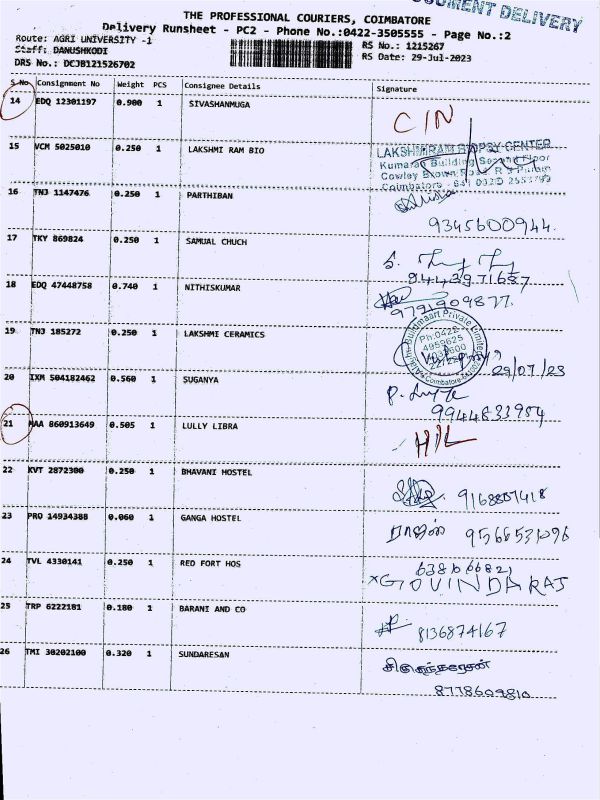 DOCUMENT DELIVERY
THE PROFESSIONAL COURIERS, COIMBATORE
Delivery Runsheet - PC2 - Phone No.:0422-3505555 - Page No.:2
Route: AGRI UNIVERSITY -1 RS No.: 1215267
Staff: DANUSHKODI RS Date: 29-Jul-2023
DRS No.: DCJB121526702
S No Consignment No Weight PCS Consignee Details Signature
14 EDQ 12301197 0.900 1 SIVASHANMUGA CIN
15 VCM 5025010 0.250 1 LAKSHMI RAM BIO LAKSHMIRAM BIOPSY CENTER
Kumaran Building Second Floor
Cowley Brown Road, R S Puram
Coimbatore - 641 002
16 TNJ 1147476 0.250 1 PARTHIBAN
9345600944.
17 TKY 869824 0.250 1 SAMUAL CHUCH
9443971687
18 EDQ 47448758 0.740 1 NITHISKUMAR 9791909877.
19 TNJ 185272 0.250 1 LAKSHMI CERAMICS Buildmaart Private Limited
Ph:0422
4959625
Coimbatore
29/07/23
20 IXM 504182462 0.560 1 SUGANYA
9944833954
21 MAA 860913649 0.505 1 LULLY LIBRA
22 KVT 2872300 0.250 1 BHAVANI HOSTEL 9168807418
23 PRO 14934388 0.060 1 GANGA HOSTEL ராஜன் 9566531096
24 TVL 4330141 0.250 1 RED FORT HOS 6381066821
GOVINDARAJ
25 TRP 6222181 0.180 1 BARANI AND CO 8136874167
26 TMI 30202100 0.320 1 SUNDARESAN
8778609810